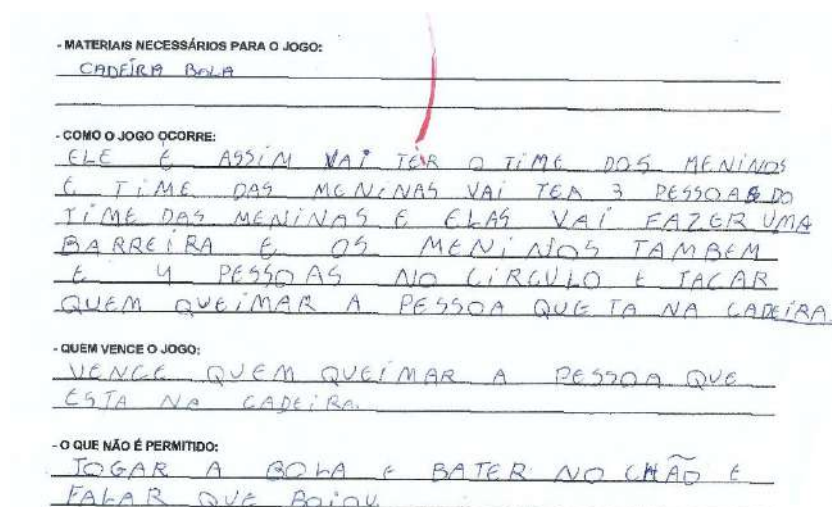 - MATERIAIS NECESSÁRIOS PARA O JOGO:
CADEIRA BOLA
- COMO O JOGO OCORRE:
ELE É ASSIM VAI TER O TIME DOS MENINOS
E TIME DAS MENINAS VAI TEA 3 PESSOAS DO
TIME DAS MENINAS E ELAS VAI FAZER UMA
BARREIRA E OS MENINOS TAMBEM
E 4 PESSOAS NO CIRCULO E TACAR
QUEM QUEIMAR A PESSOA QUE TA NA CADEIRA.
- QUEM VENCE O JOGO:
VENCE QUEM QUEIMAR A PESSOA QUE
ESTA NA CADEIRA.
- O QUE NÃO É PERMITIDO:
JOGAR A BOLA E BATER NO CHÃO E
FALAR QUE